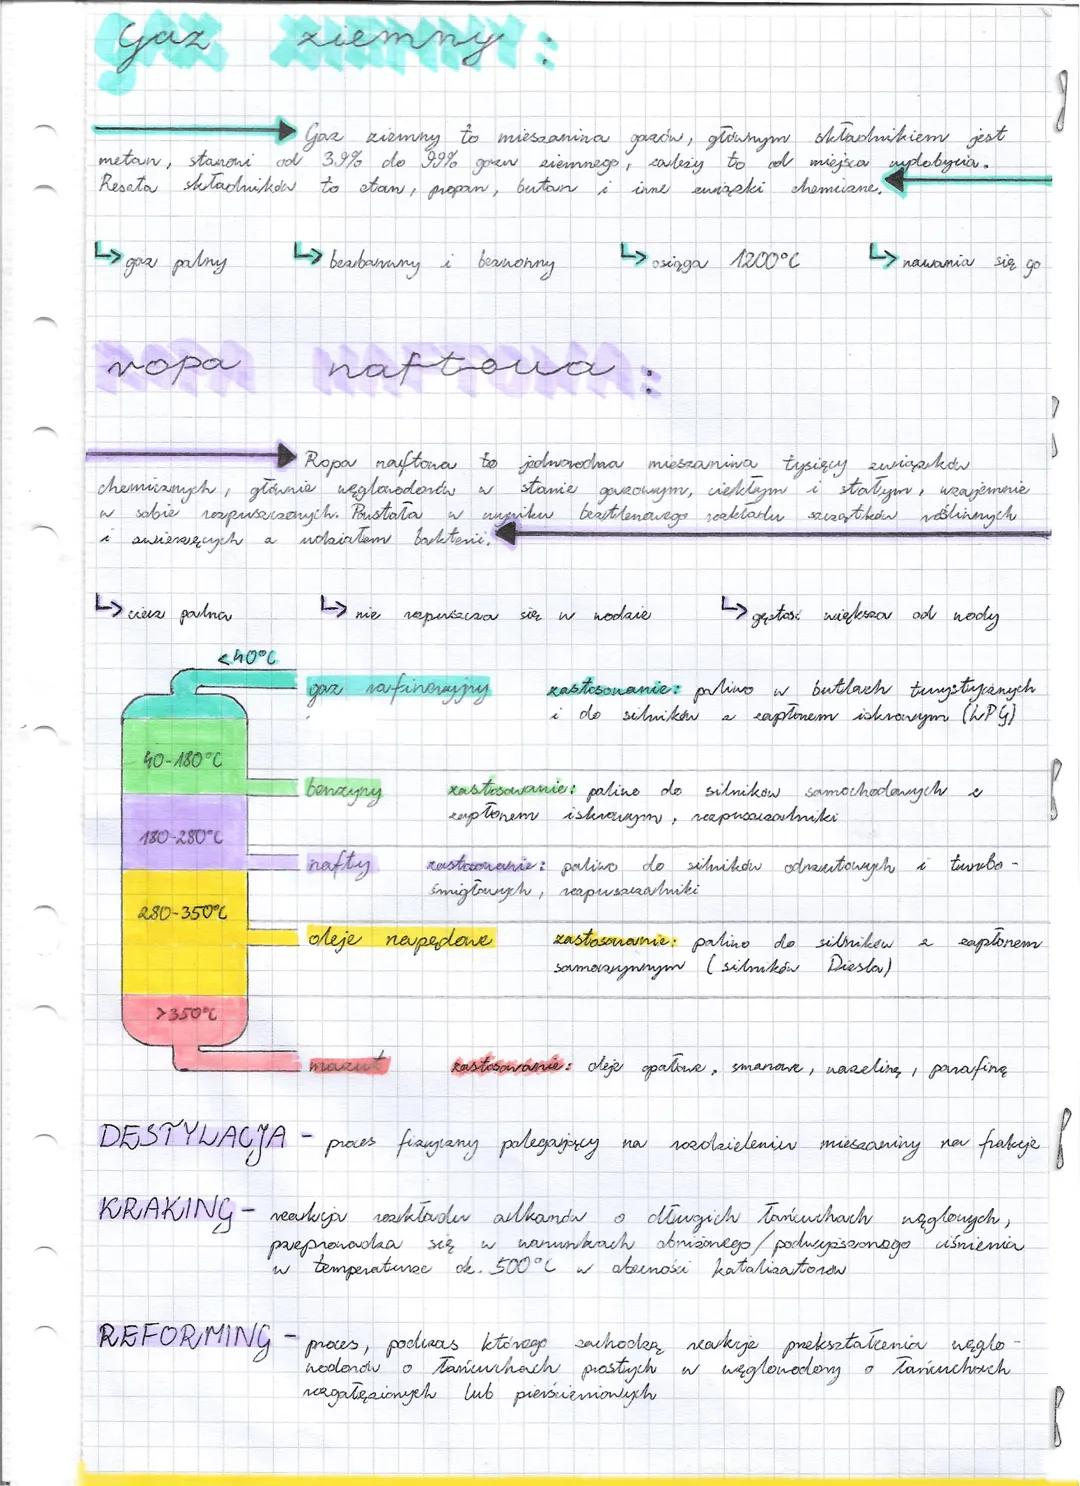 gaz ziemny:
Gaz ziemny to mieszanina gazów, głównym składnikiem jest
metan, stanowi od 39% do 99% gazu ziemnego, zależy to od miejsca wydobycia.
Reszta składników to etan, propan, butan i inne związki chemiczne.
↳ gaz palny ↳ bezbarwny i bezwonny ↳ osiąga 1200°C ↳ nawania się go
ropa naftowa:
Ropa naftowa to jednorodna mieszanina tysięcy związków
chemicznych, głównie węglowodorów w stanie gazowym, ciekłym i stałym, wzajemnie
w sobie rozpuszczonych. Powstała w wyniku beztlenowego rozkładu szczątków roślinnych
i zwierzęcych z udziałem bakterii.
↳ ciecz palna ↳ nie rozpuszcza się w wodzie ↳ gęstość większa od wody
<40°C
gaz rafineryjny zastosowanie: paliwo w butlach turystycznych
i do silników z zapłonem iskrowym (LPG)
40-180°C
benzyny zastosowanie: paliwo do silników samochodowych z
zapłonem iskrowym, rozpuszczalniki
180-280°C
nafty zastosowanie: paliwo do silników odrzutowych i turbo-
śmigłowych, rozpuszczalniki
280-350°C
oleje napędowe zastosowanie: paliwo do silników z zapłonem
samoczynnym (silników Diesla)
>350°C
mazut zastosowanie: oleje opałowe, smarowe, wazelinę, parafinę
DESTYLACJA - proces fizyczny polegający na rozdzieleniu mieszaniny na frakcje
KRAKING - reakcja rozkładu alkanów o długich łańcuchach węglowych,
przeprowadza się w warunkach obniżonego/podwyższonego ciśnienia
w temperaturze ok. 500°C w obecności katalizatorów
REFORMING - proces, podczas którego zachodzą reakcje przekształcenia węglo-
wodorów o łańcuchach prostych w węglowodory o łańcuchach
rozgałęzionych lub pierścieniowych